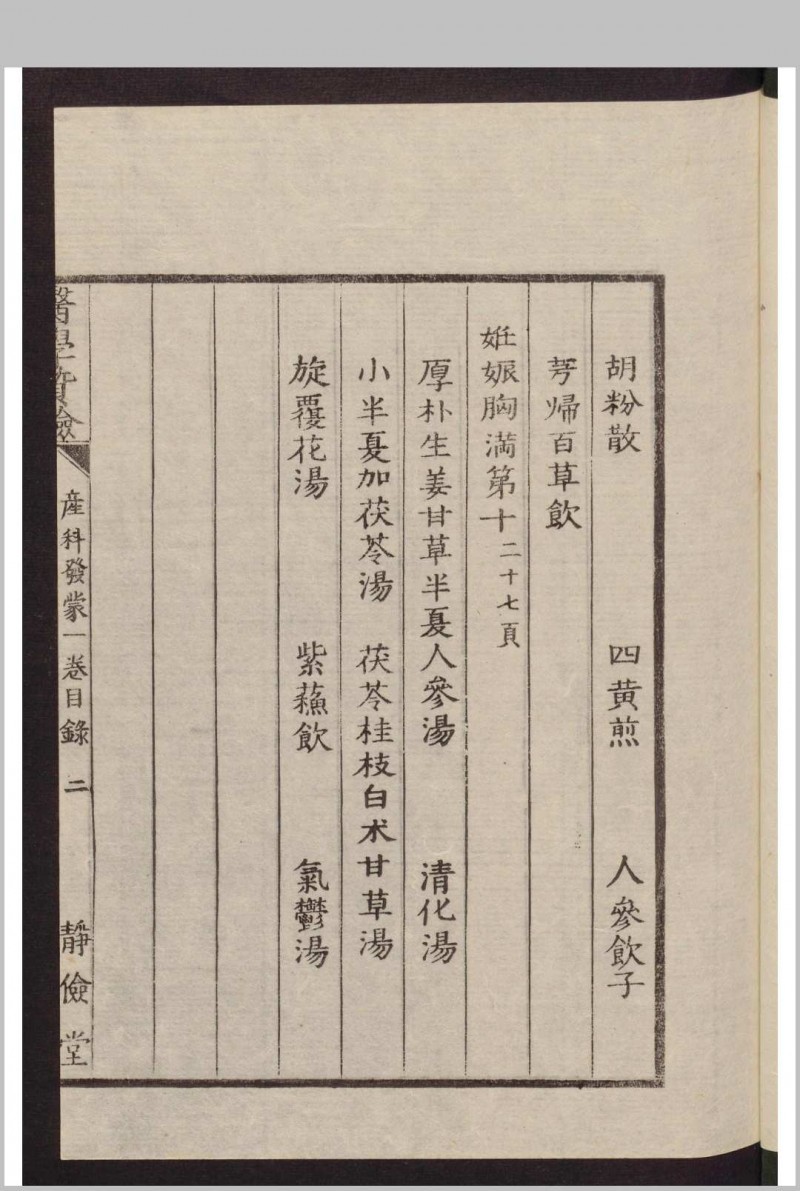 胡粉散 四黄煎 人參飲子
芎帰百草飲
妊娠胸満第十二十七頁
厚朴生姜甘草半夏人參湯 清化湯
小半夏加茯苓湯 茯苓桂枝白朮甘草湯
旋覆花湯 紫蘓飲 氣鬱湯
産科發蒙一卷目錄 二 靜儉堂